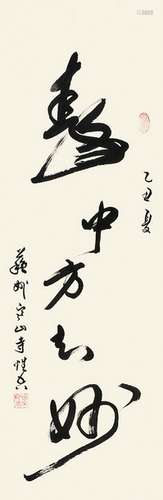 乙丑夏
中方知妙
蘓州寒山寺性空